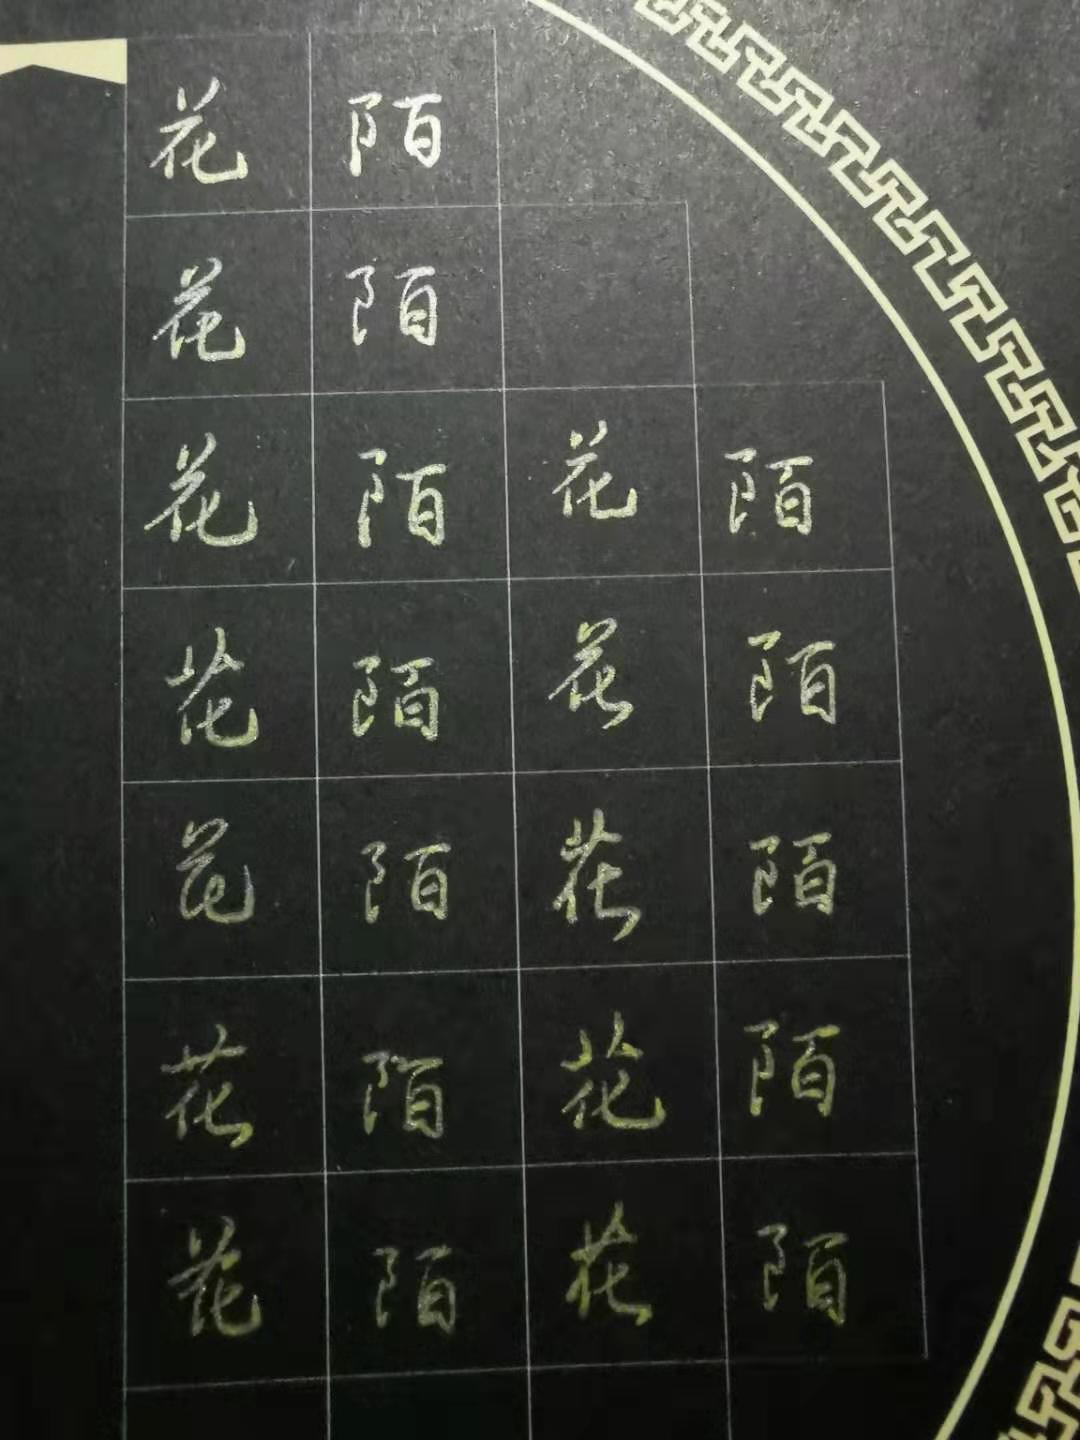 花 陌
花 陌
花 陌 花 陌
花 陌 花 陌
花 陌 花 陌
花 陌 花 陌
花 陌 花 陌